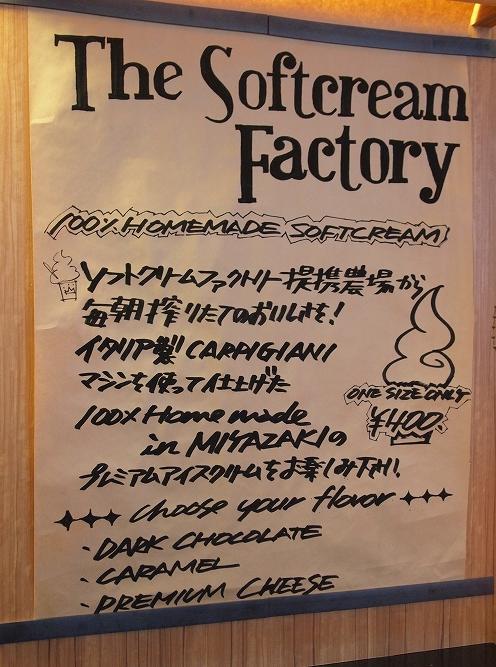 The Softcream
Factory
100% HOMEMADE SOFTCREAM
ソフトクリームファクトリー提携農場から
毎朝搾りたてのおいしさを!
イタリア製 CARPIGIANI
マシンを使って仕上げた
100% Home made
in MIYAZAKIの
プレミアムアイスクリームをお楽しみ下さい。
ONE SIZE ONLY
¥400.
choose your flavor
・DARK CHOCOLATE
・CARAMEL
・PREMIUM CHEESE